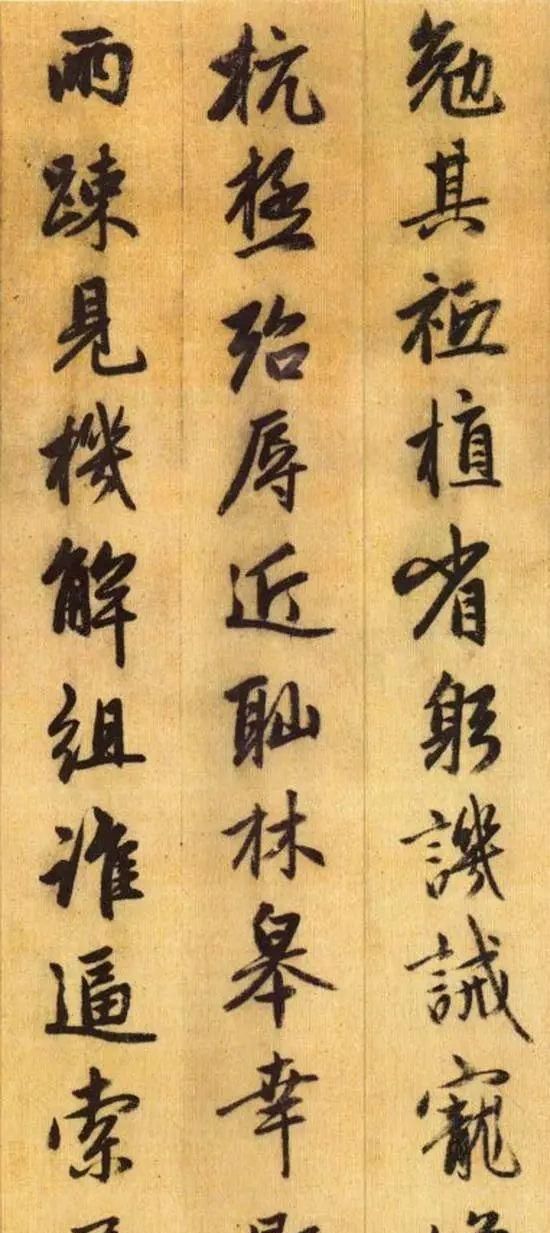 勉其祗植省躬譏誡寵
杭極殆辱近耻林皋幸
兩疎見機解組誰逼索